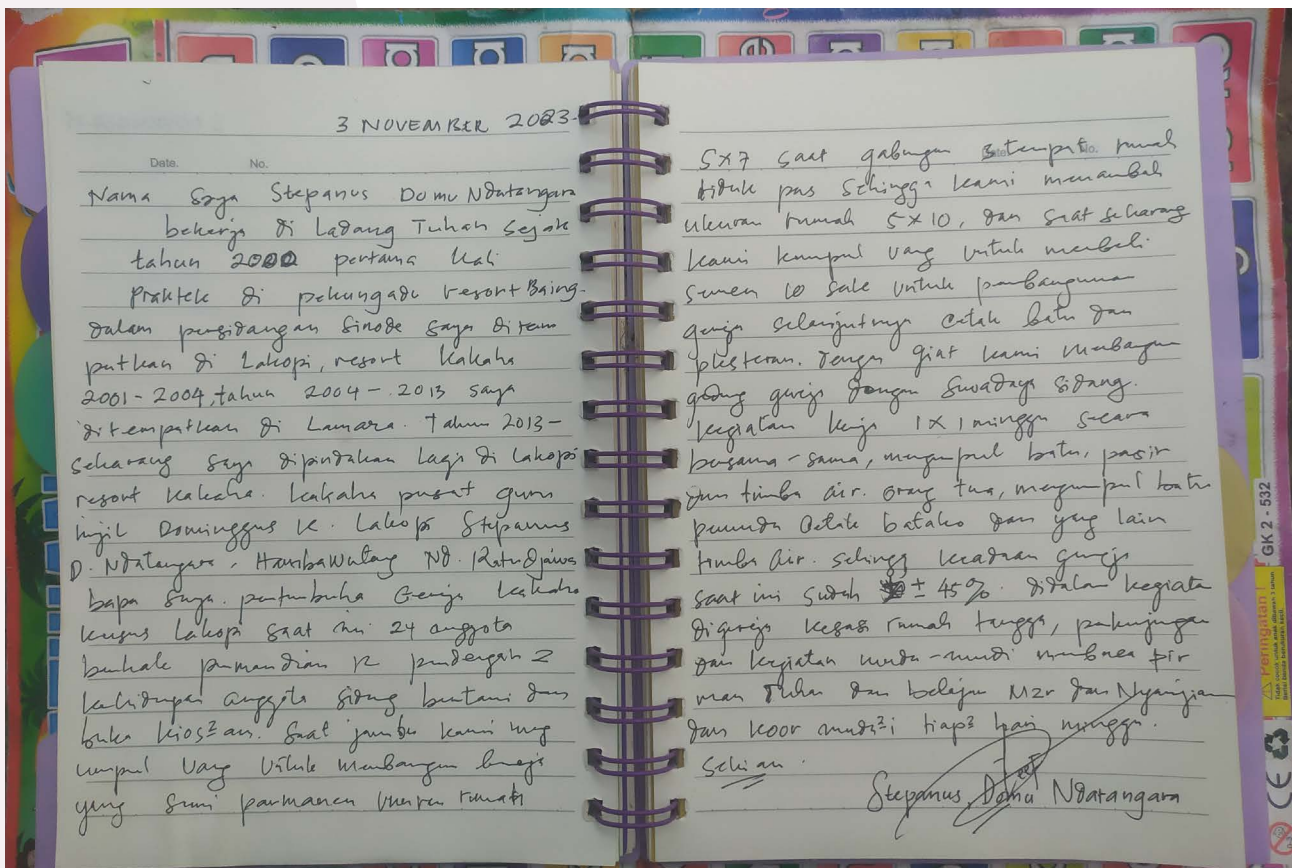 3 NOVEMBER 2023.
Date. No.
Nama Saya Stepanus Domu Ndatangara
bekerja di Ladang Tuhan Sejak
tahun 2000 pertama kali
Praktek di pekungadu resort Baing.
dalam persidangan Sinode saya ditem
patkan di Lakopi, resort Kakaha
2001 - 2004, tahun 2004 - 2013 saya
ditempatkan di Lamara. Tahun 2013 -
sekarang saya dipindakan lagi di Lakopi
resort kakaha. kakaha pusat guru
Injil Dominggus K. Lakopi Stepanus
D. Ndatangara, Hambawutang Nd. Ratudjawa
bapa saya. pertumbuha Gereja kakaha
kusus Lakopi saat ini 24 anggota
pemandian 12 pendengar 2
kehidupan anggota sidang bertani dan
buka kios² an. Saat jambu kami meng
umpul uang untuk membangun Gereja
yang semi parmanen ukuran rumah
5x7 saat gabungan 3 tempat rumah
tiduk pas sehingga kami menambah
ukuran rumah 5x10, dan saat sekarang
kami kumpul uang untuk membeli
semen 10 sak untuk pembangunan
gereja selanjutnya cetak batu dan
plesteran. Dengan giat kami membangun
gedung gereja dengan Swadaya Sidang.
kegiatan kerja 1x1 minggu secara
bersama-sama, mengumpul batu, pasir
dan timba air. orang tua, mengumpul batu
pemuda cetak batako dan yang lain
timba air. sehingga keadaan gereja
saat ini sudah ± 45%. didalam kegiatan
digereja rumah tangga, pekunjungan
dan kegiatan muda-mudi membaca fir
man Tuhan dan belajar Mzr dan Nyanjian
dan koor mudi²i tiap² hari minggu.
sekian.
Stepanus Domu Ndatangara
GK 2 - 532
Peringatan !
CE